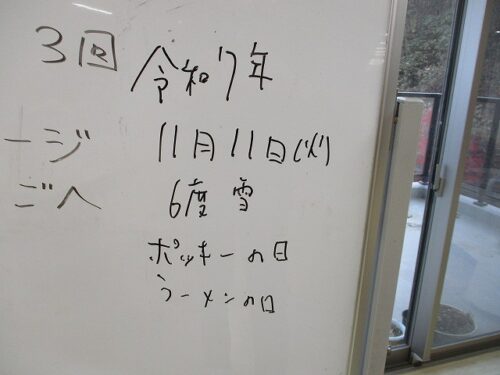 3回
ージ
ごへ
令和7年
11月11日(火)
6度 雪
ポッキーの日
ラーメンの日